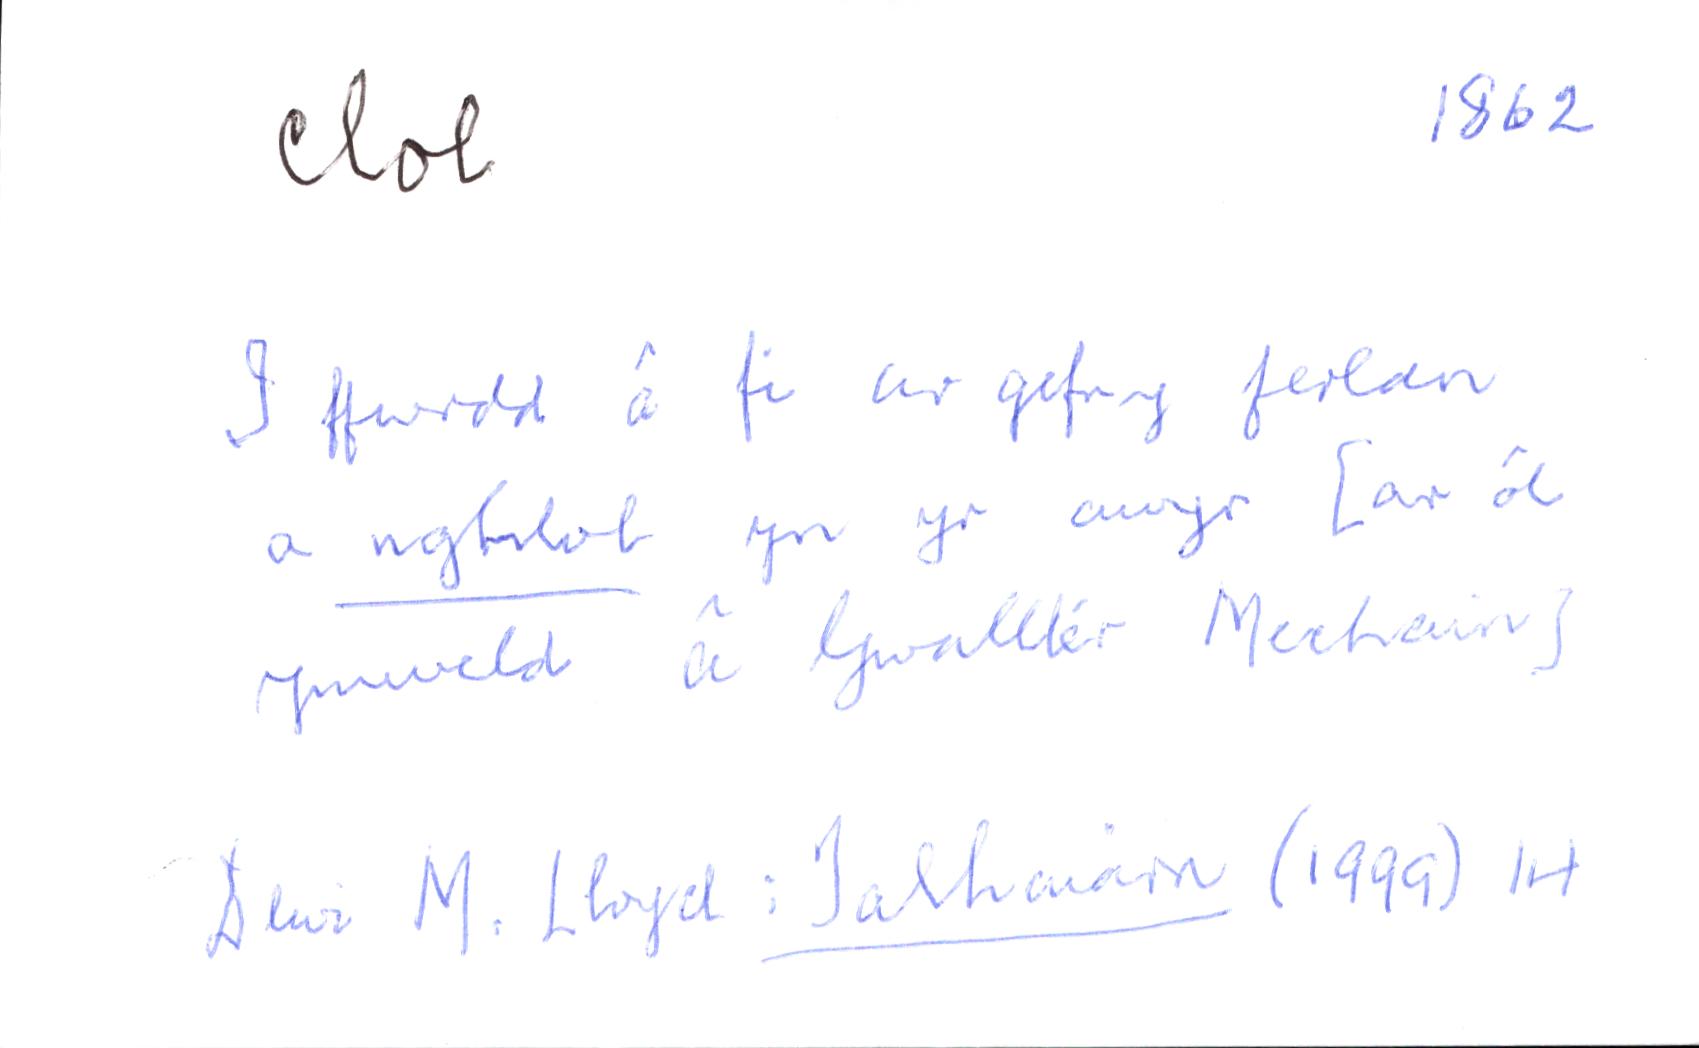 clol
1862
I ffwrdd â fi ar gefn y ferlen
a nghlol yn yr awyr [ar ôl
ymweld â Gwallter Mechain]
Dewi M. Lloyd : Talhaiarn (1999) 14